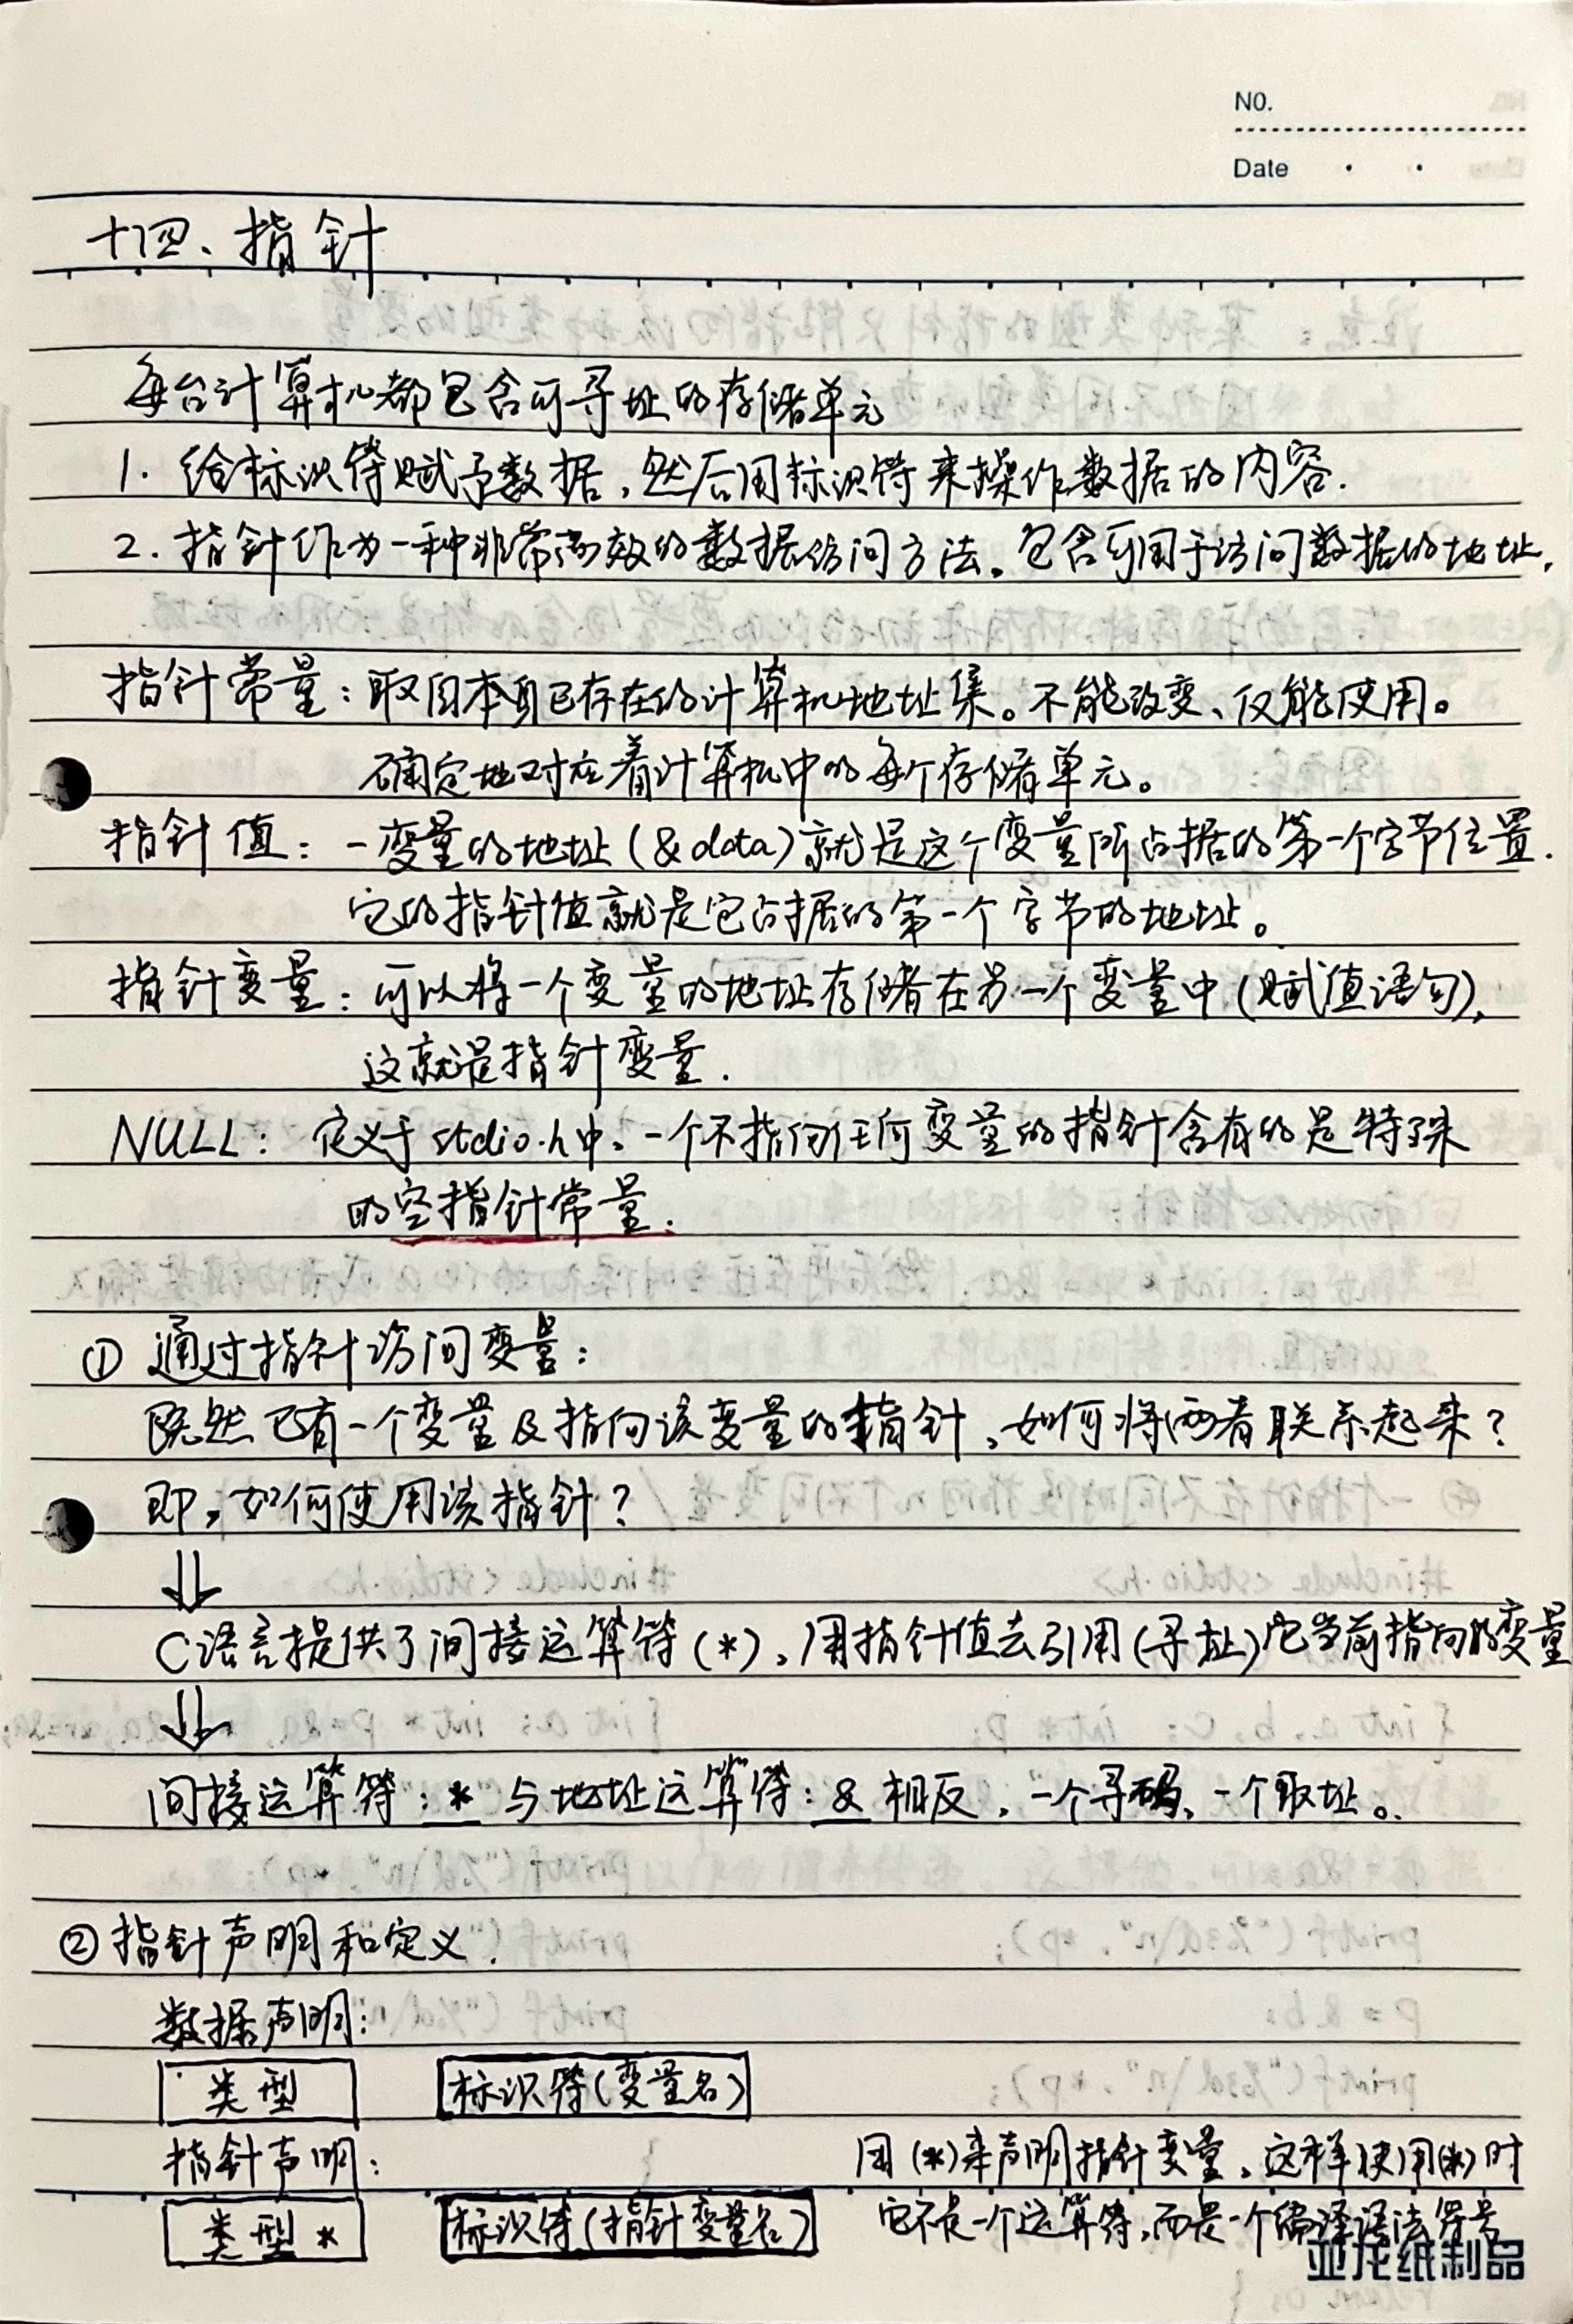 NO.
Date
十四、指针
每台计算机都包含可寻址的存储单元
1. 给标识符赋予数据,然后用标识符来操作数据的内容.
2. 指针作为一种非常高效的数据访问方法,包含可用于访问数据的地址,
指针常量:取自本身已存在的计算机地址集。不能改变、仅能使用。
确定地对应着计算机中的每个存储单元。
指针值:一变量的地址(&data)就是这个变量所占据的第一个字节位置.
它的指针值就是它占据的第一个字节的地址。
指针变量:可以将一个变量的地址存储在另一个变量中(赋值语句),
这就是指针变量.
NULL: 定义于stdio.h中、一个不指向任何变量的指针含有的是特殊
的空指针常量.
① 通过指针访问变量:
既然已有一个变量及指向该变量的指针,如何将两者联系起来?
即,如何使用该指针?
⇓
C语言提供了间接运算符(*),用指针值去引用(寻址)它当前指向的变量
⇓
间接运算符:* 与地址运算符:& 相反,一个寻码、一个取址。
② 指针声明和定义:
数据声明:
类型 标识符(变量名)
指针声明: 用(*)来声明指针变量,这样使用(*)时
类型* 标识符(指针变量名) 它不是一个运算符,而是一个编译语法符号
亚龙纸制品